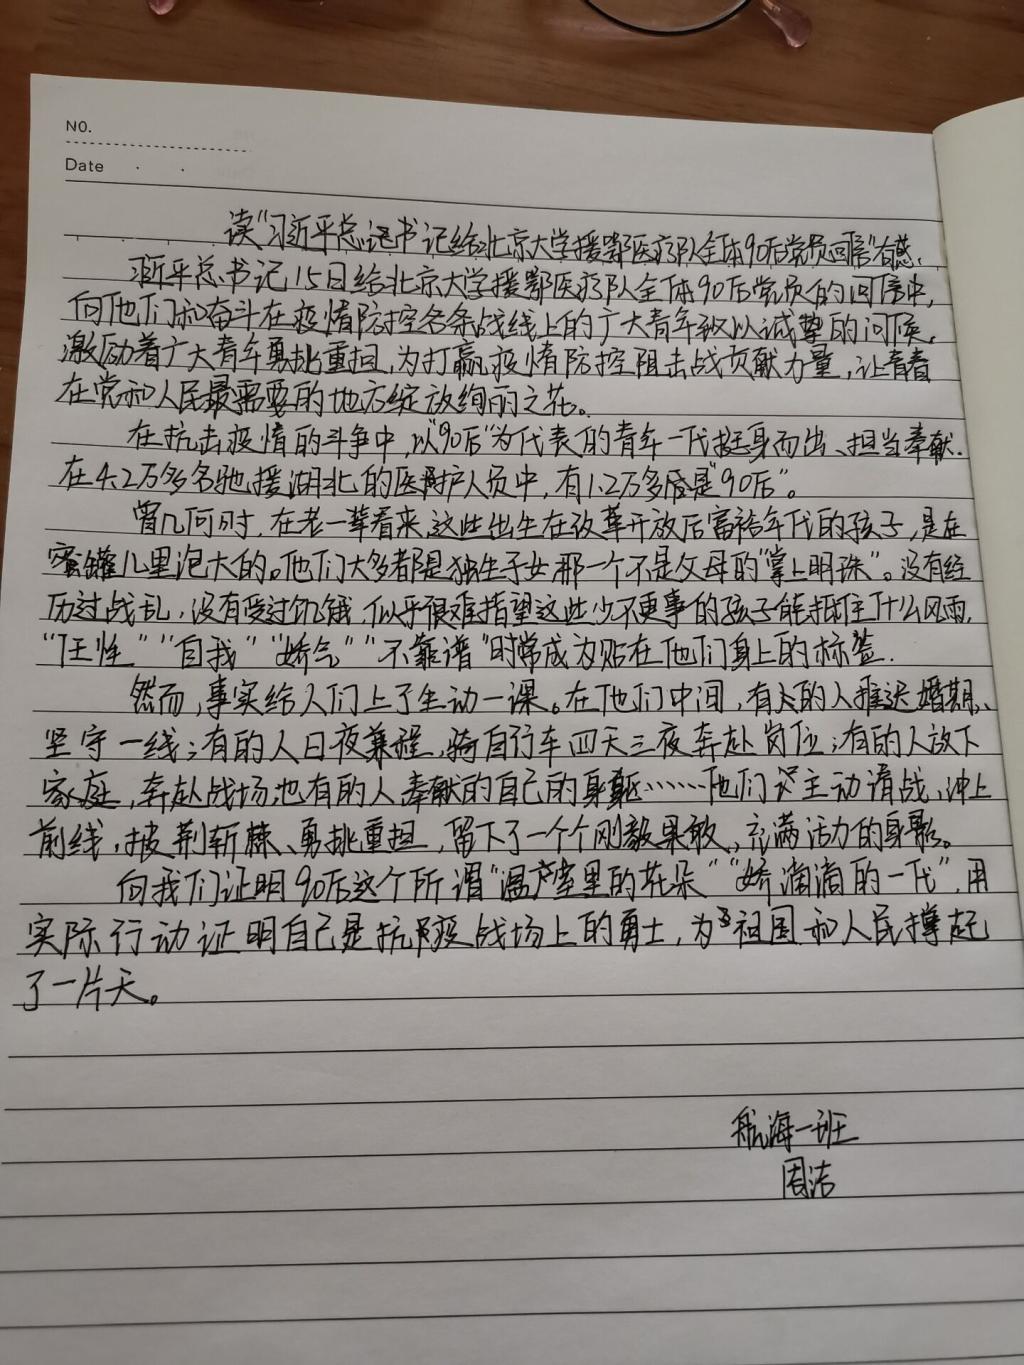 NO.
Date
读"习近平总记书记给北京大学援鄂医疗队全体90后党员回信"有感.
习近平总书记15日给北京大学援鄂医疗队全体90后党员的回信中,
向他们和奋斗在疫情防控各条战线上的广大青年致以诚挚的问候.
激励着广大青年勇挑重担,为打赢疫情防控阻击战贡献力量,让青春
在党和人民最需要的地方绽放绚丽之花。
在抗击疫情的斗争中,以"90后"为代表的青年一代挺身而出、担当奉献.
在4.2万多名驰援湖北的医护人员中,有1.2万多名是"90后"。
曾几何时,在老一辈看来,这些出生在改革开放后富裕年代的孩子,是在
蜜罐儿里泡大的。他们大多都是独生子女那一个不是父母的"掌上明珠"。没有经
历过战乱,没有受过饥饿,似乎很难指望这些少不更事的孩子能抵住什么风雨,
"任性""自我""娇气""不靠谱"时常成为贴在他们身上的标签.
然而,事实给人们上了生动一课。在他们中间,有的人推迟婚期、
坚守一线;有的人日夜兼程,骑自行车四天三夜奔赴岗位;有的人放下
家庭,奔赴战场;也有的人奉献的自己的身躯……他们主动请战、冲上
前线,披荆斩棘、勇挑重担,留下了一个个刚毅果敢、充满活力的身影。
向我们证明90后这个所谓"温室里的花朵""娇滴滴的一代",用
实际行动证明自己是抗疫战场上的勇士,为祖国和人民撑起
了一片天。
航海一班
周洁